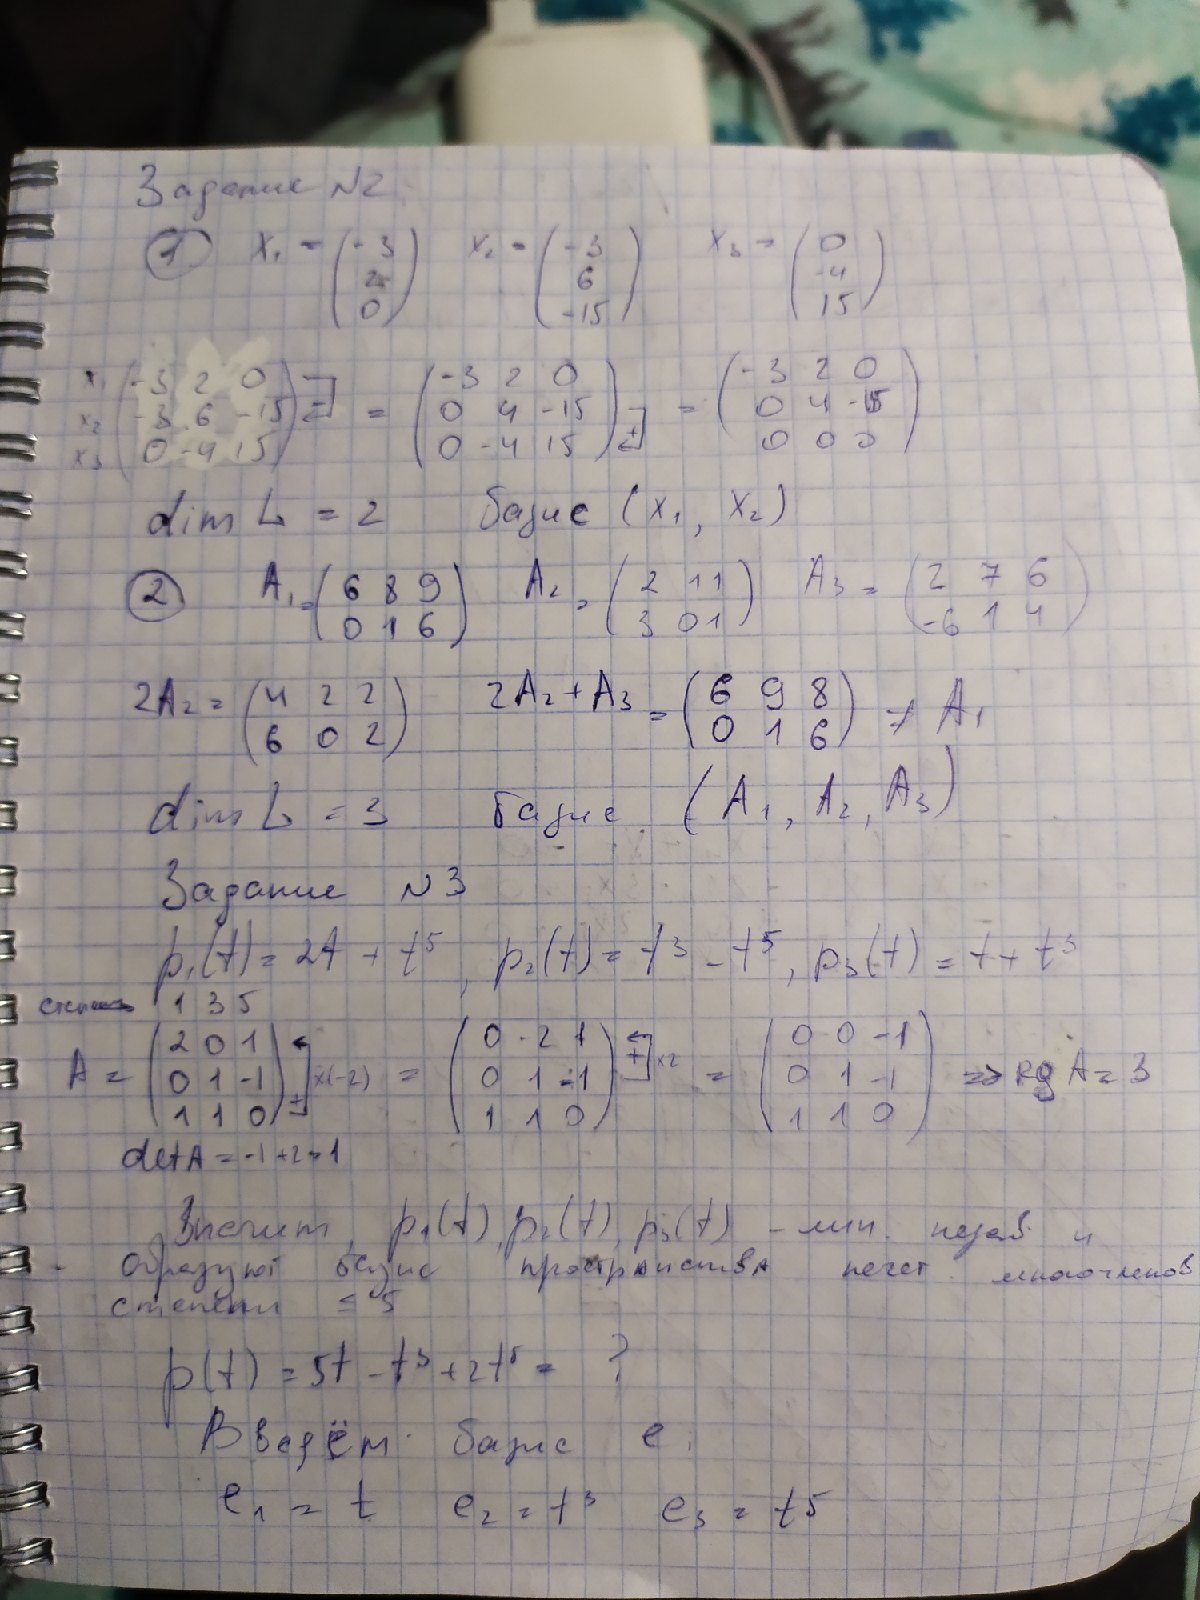 Задание №2
① x₁ = (-3 2 0) x₂ = (-3 6 -15) x₃ = (0 -4 15)
x₁ (-3 2 0) = (-3 2 0) = (-3 2 0)
x₂ (-3 6 -15) (0 4 -15) (0 4 -15)
x₃ (0 -4 15) (0 -4 15) (0 0 0)
dim L = 2 базис (x₁, x₂)
② A₁ = (6 8 9 / 0 1 6) A₂ = (2 1 1 / 3 0 1) A₃ = (2 7 6 / -6 1 4)
2A₂ = (4 2 2 / 6 0 2) 2A₂ + A₃ = (6 9 8 / 0 1 6) ≠ A₁
dim L = 3 базис (A₁, A₂, A₃)
Задание №3
p₁(t) = 2t + t⁵, p₂(t) = t³ - t⁵, p₃(t) = t + t³
степень 1 3 5
A = (2 0 1 / 0 1 -1 / 1 1 0) x(-2) = (0 -2 1 / 0 1 -1 / 1 1 0) x2 = (0 0 -1 / 0 1 -1 / 1 1 0) => rg A = 3
det A = -1 + 2 = 1
Значит, p₁(t), p₂(t), p₃(t) - лин. незав. и
образуют базис пространства нечет. многочленов
степени ≤ 5
p(t) = 5t - t³ + 2t⁵ = ?
Введём базис e.
e₁ = t e₂ = t³ e₃ = t⁵